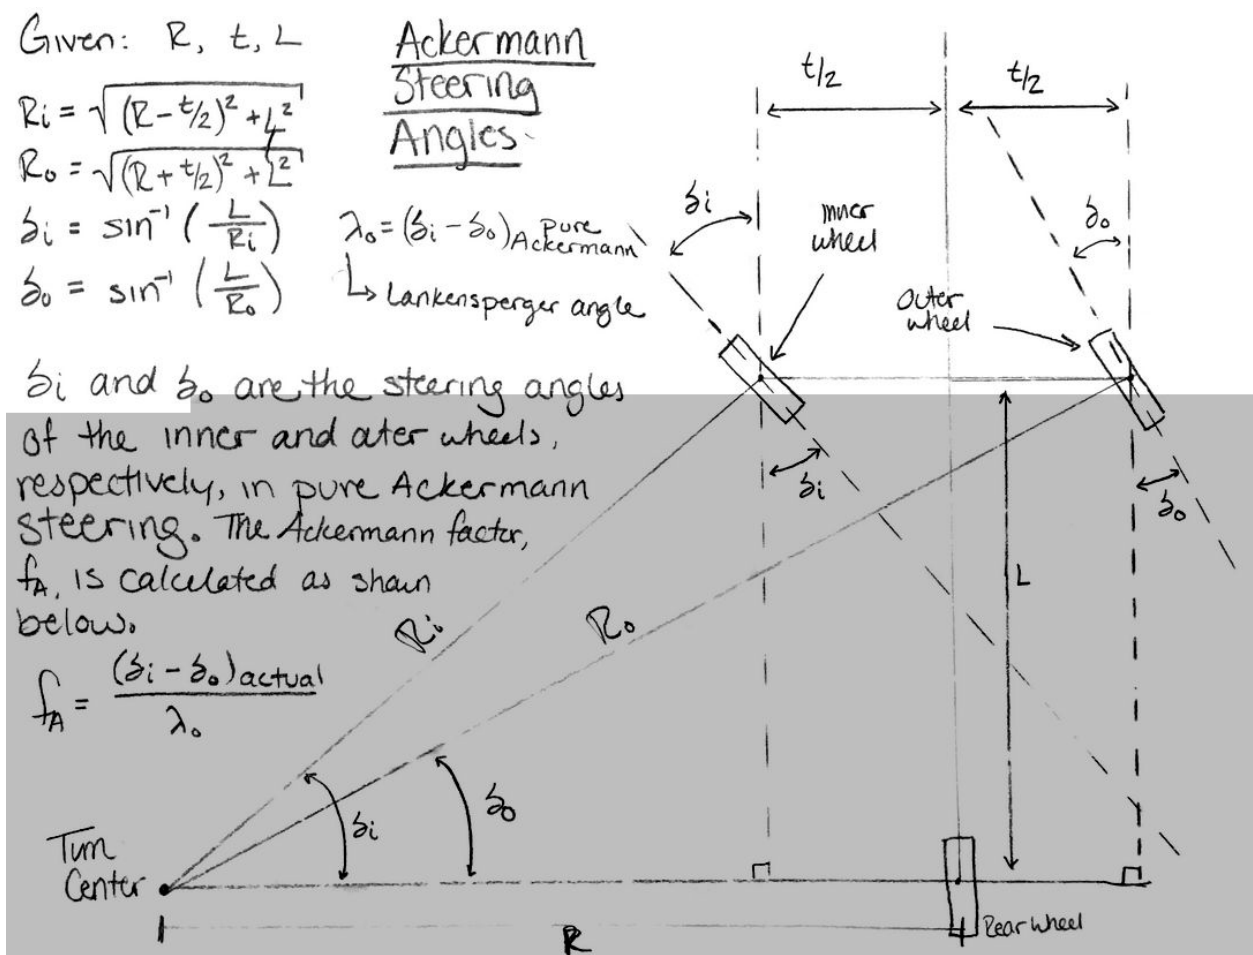 Given: R, t, L
Ackermann
Steering
Angles
Ri = √((R - t/2)² + L²)
Ro = √((R + t/2)² + L²)
δi = sin⁻¹ (L/Ri)
δo = sin⁻¹ (L/Ro)
λo = (δi - δo) pure Ackermann
↳ Lankensperger angle
δi and δo are the steering angles
of the inner and outer wheels,
respectively, in pure Ackermann
steering. The Ackermann factor,
fA, is calculated as shown
below.
fA = (δi - δo)actual / λo
t/2
t/2
δi
inner
wheel
δo
outer
wheel
δi
δo
L
Ri
Ro
δi
δo
Turn
Center
R
Rear wheel